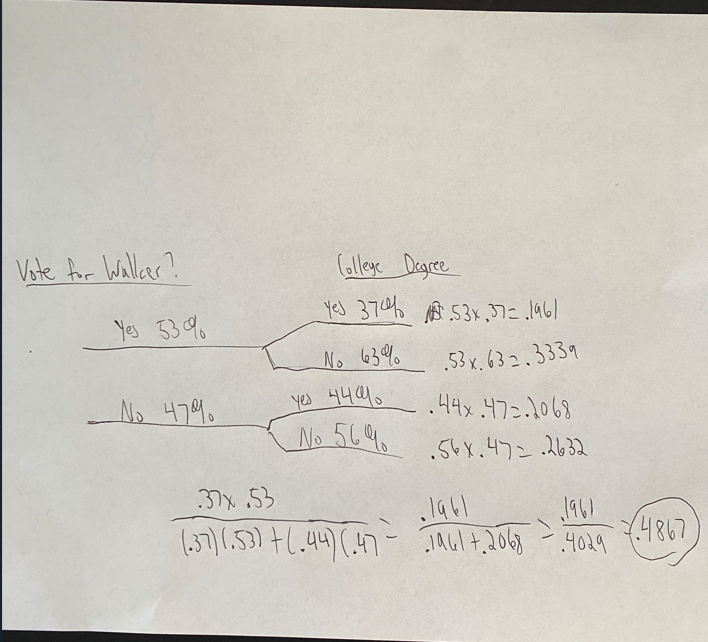 Vote for Walker? College Degree
Yes 37% .53x.37=.1961
Yes 53%
No 63% .53x.63=.3339
No 47% yes 44% .44x.47=.2068
No 56% .56x.47=.2632
.37x .53
(.37)(.53)+(.44)(.47 = .1961 / .1961+.2068 = .1961 / .4029 = .4867